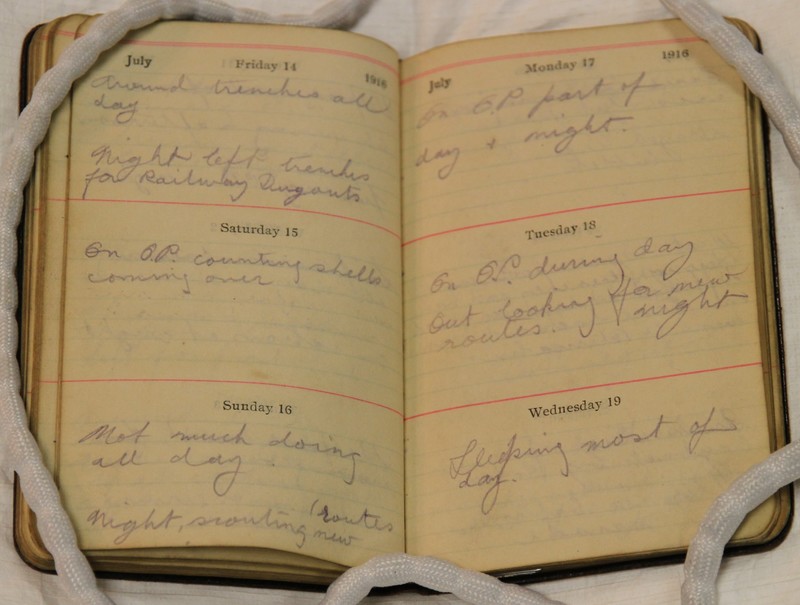 July Friday 14 1916
Around trenches all
day
Night left trenches
for Railway Dugouts
Saturday 15
On O.P. counting shells
coming over
Sunday 16
Not much doing
all day.
Night, scouting (routes
new
July Monday 17 1916
On O.P. part of
day & night.
Tuesday 18
On O.P. during day
Out looking for new
routes. night
Wednesday 19
Sleeping most of
day.